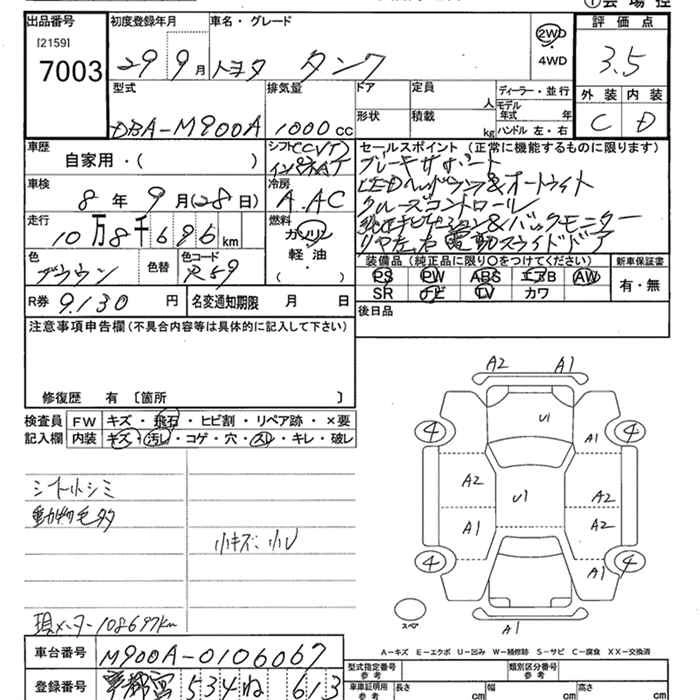 ①会場控
出品番号 初度登録年月 車名・グレード 2WD・4WD 評価点
[2159]
7003 29年9月 トヨタ タンク 3.5
型式 排気量 ドア 定員 人 ディーラー・並行 外装 内装
DBA-M900A 1000cc 形状 積載 kg モデル年式 年 ハンドル 左・右 C D
車歴 自家用・( ) シフト CVT インパネAT
セールスポイント (正常に機能するものに限ります)
ブレーキサポート
LEDヘッドランプ&オートライト
クルーズコントロール
ナビゲーション&バックモニター
リヤ左右電動スライドドア
車検 8年9月(28日) 冷房 A.AC
走行 10万8千696km 燃料 ガソリン 軽油・( )
色 ブラウン 色替 色コード R59
装備品(純正品に限り○をつけてください) 新車保証書
PS PW ABS エアB AW 有・無
SR ナビ TV カワ
R券 9,130円 名変通知期限 月 日
後日品
注意事項申告欄(不具合内容等は具体的に記入して下さい)
修復歴 有 〔箇所 〕
検査員記入欄 FW キズ・飛石・ヒビ割・リペア跡・×要
内装 キズ・汚レ・コゲ・穴・スレ・キレ・破レ
シート小シミ
動物毛多
小キズ、小U
現メーター108697km
A2 A1
4 U1 4
A1
A2 U1 A2
A1 A2
4 A1 4
スペア A1
A-キズ E-エクボ U-凹み W-補修跡 S-サビ C-腐食 XX-交換済
車台番号 M900A-0106067
登録番号 宇都宮 534 ね 613
型式指定番号 参考 類別区分番号 参考
車庫証明用 参考 長さ cm 幅 cm 高さ cm